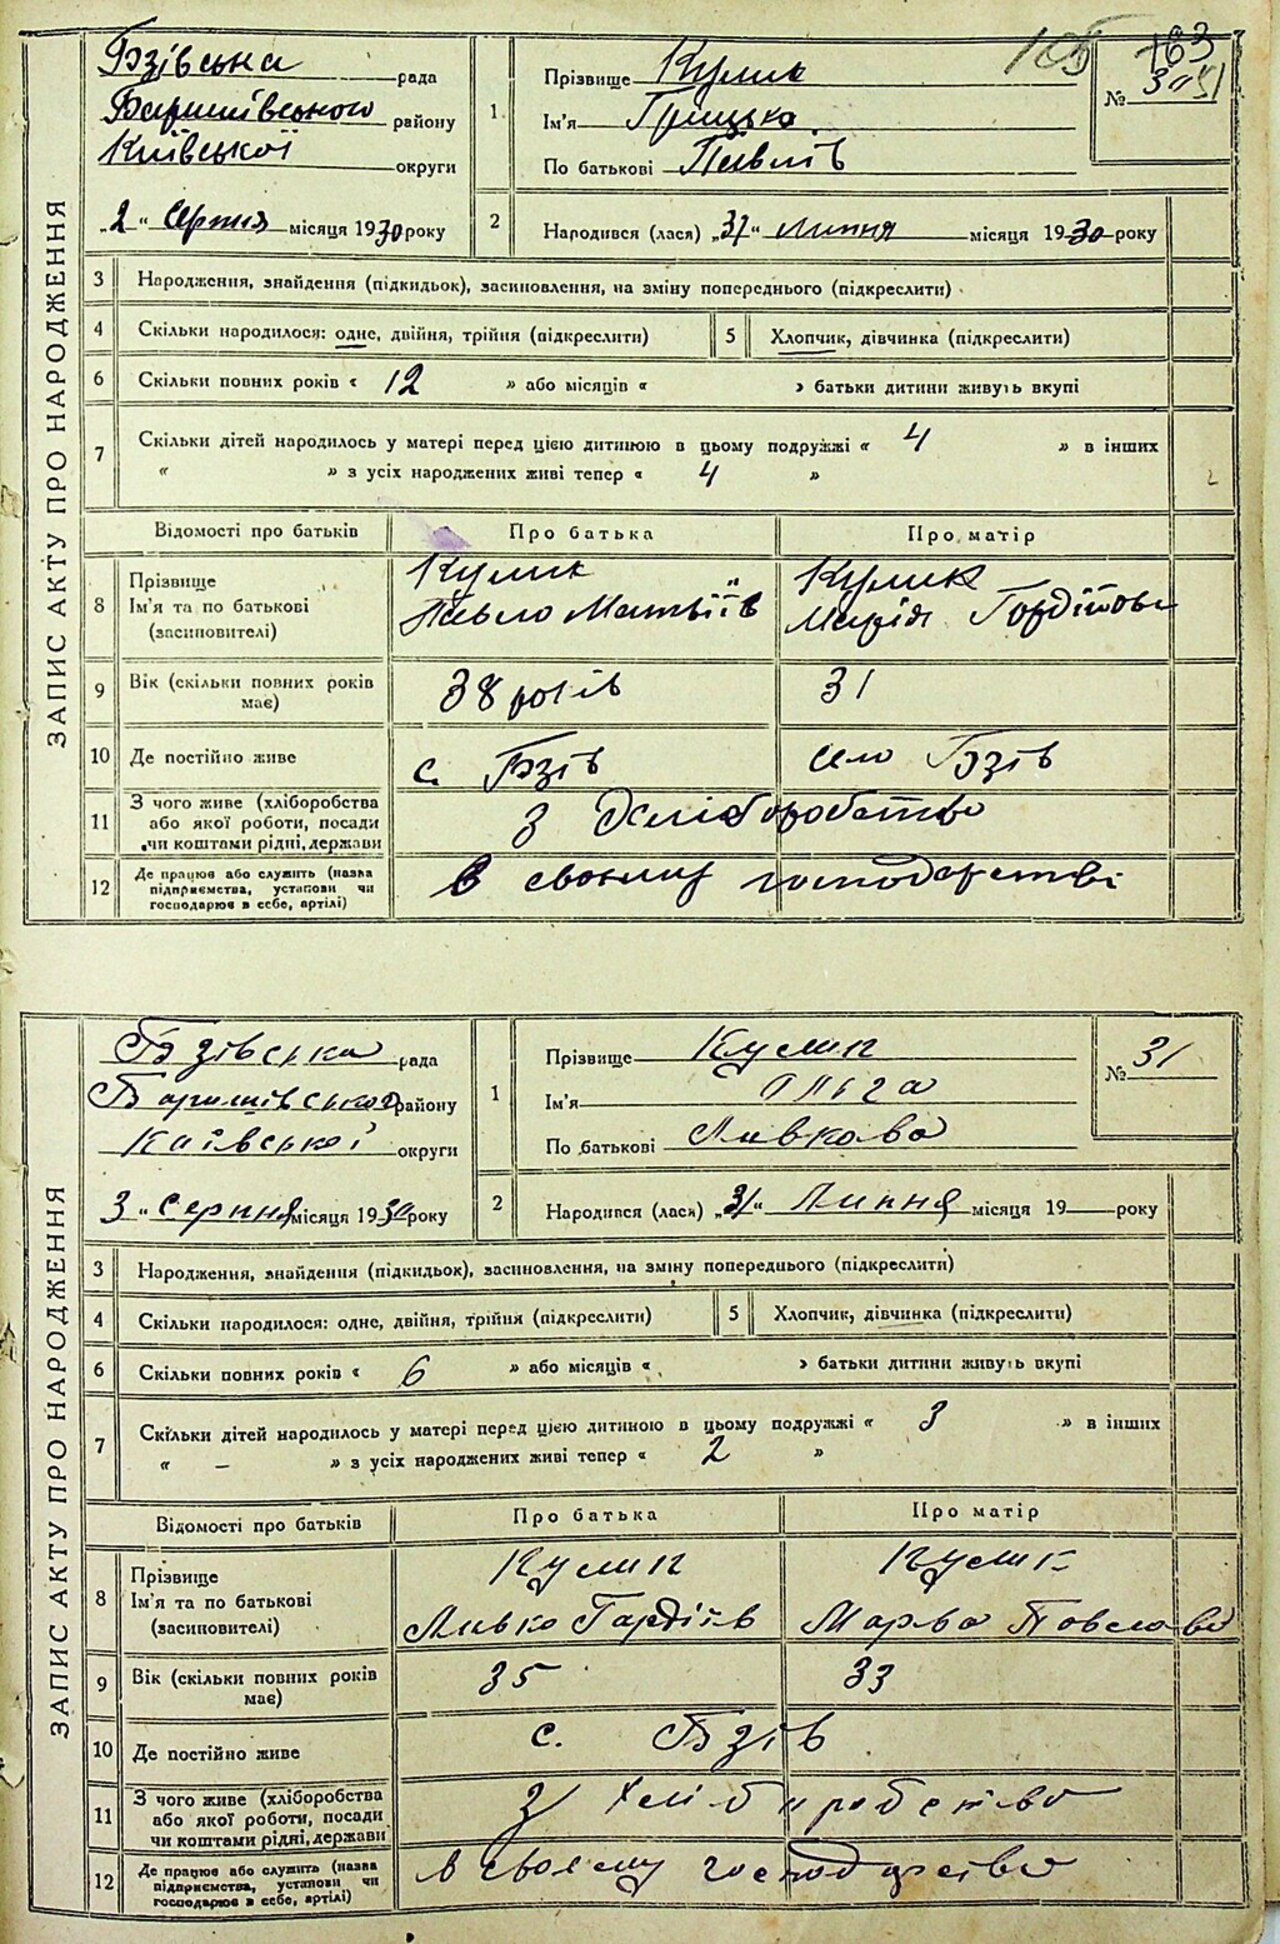 ЗАПИС АКТУ ПРО НАРОДЖЕННЯ
105
163
Бзівська рада
Баришівського району
Київської округи
„2“ Серпня місяця 1930 року
1
Прізвище Кулик
Ім'я Грицько
По батькові Павлів
№ 30
2
Народився (лася) „31“ липня місяця 1930 року
3 Народження, знайдення (підкидьок), засиновлення, на зміну попереднього (підкреслити)
4 Скільки народилося: одне, двійня, трійня (підкреслити)
5 Хлопчик, дівчинка (підкреслити)
6 Скільки повних років « 12 » або місяців « » батьки дитини живуть вкупі
7 Скільки дітей народилось у матері перед цією дитиною в цьому подружжі « 4 » в інших
« » з усіх народжених живі тепер « 4 »
Відомості про батьків
Про батька
Про матір
8 Прізвище
Ім'я та по батькові
(засиновителі)
Кулик
Павло Матвіїв
Кулик
Марія Гордіїова
9 Вік (скільки повних років
має)
38 років
31
10 Де постійно живе
с. Бзів
село Бзів
11 З чого живе (хліборобства
або якої роботи, посади
чи коштами рідні, держави
З хліборобства
12 Де працює або служить (назва
підприємства, установи чи
господарює в себе, артілі)
в своєму господарстві
ЗАПИС АКТУ ПРО НАРОДЖЕННЯ
Бзівська рада
Баришівського району
Київської округи
3 “ Серпня місяця 1930 року
1
Прізвище Кулик
Ім'я Ольга
По батькові Ливкова
№ 31
2
Народився (лася) „31“ Липня місяця 19 року
3 Народження, знайдення (підкидьок), засиновлення, на зміну попереднього (підкреслити)
4 Скільки народилося: одне, двійня, трійня (підкреслити)
5 Хлопчик, дівчинка (підкреслити)
6 Скільки повних років « 6 » або місяців « » батьки дитини живуть вкупі
7 Скільки дітей народилось у матері перед цією дитиною в цьому подружжі « 3 » в інших
« – » з усіх народжених живі тепер « 2 »
Відомості про батьків
Про батька
Про матір
8 Прізвище
Ім'я та по батькові
(засиновителі)
Кулик
Ливко Гардіїв
Кулик
Марва Повлова
9 Вік (скільки повних років
має)
35
33
10 Де постійно живе
с. Бзів
11 З чого живе (хліборобства
або якої роботи, посади
чи коштами рідні, держави
З хліборобство
12 Де працює або служить (назва
підприємства, установи чи
господарює в себе, артілі)
в своєму господарстві